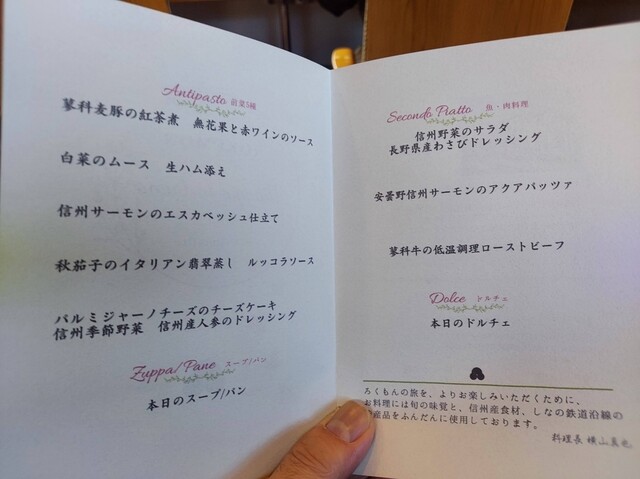 Antipasto 前菜5種
蓼科麦豚の紅茶煮　無花果と赤ワインのソース
白菜のムース　生ハム添え
信州サーモンのエスカベッシュ仕立て
秋茄子のイタリアン翡翠蒸し　ルッコラソース
パルミジャーノチーズのチーズケーキ
信州季節野菜　信州産人参のドレッシング
Zuppa/Pane スープ/パン
本日のスープ/パン
Secondo Piatto 魚・肉料理
信州野菜のサラダ
長野県産わさびドレッシング
安曇野信州サーモンのアクアパッツァ
蓼科牛の低温調理ローストビーフ
Dolce ドルチェ
本日のドルチェ
ろくもんの旅を、よりお楽しみいただくために、
お料理には旬の味覚と、信州産食材、しなの鉄道沿線の
産品をふんだんに使用しております。
料理長 横山